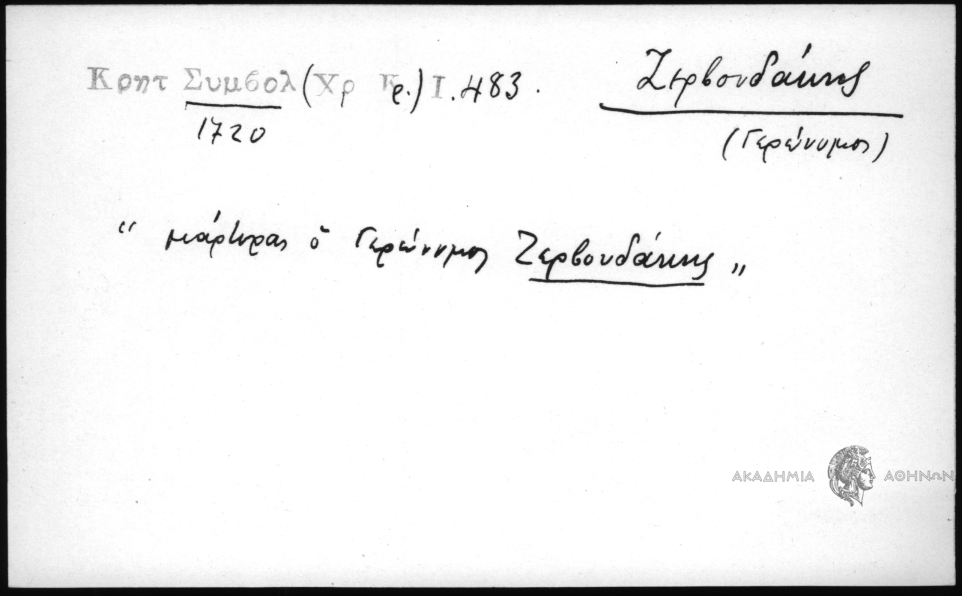 Κρητ Συμβολ (Χρ Κρ.) Ι. 483.
1720
Ζερβουδάκης
(Γερώνυμος)
“ μάρτυρας ὁ Γερώνυμος Ζερβουδάκης „
ΑΚΑΔΗΜΙΑ ΑΘΗΝΩΝ